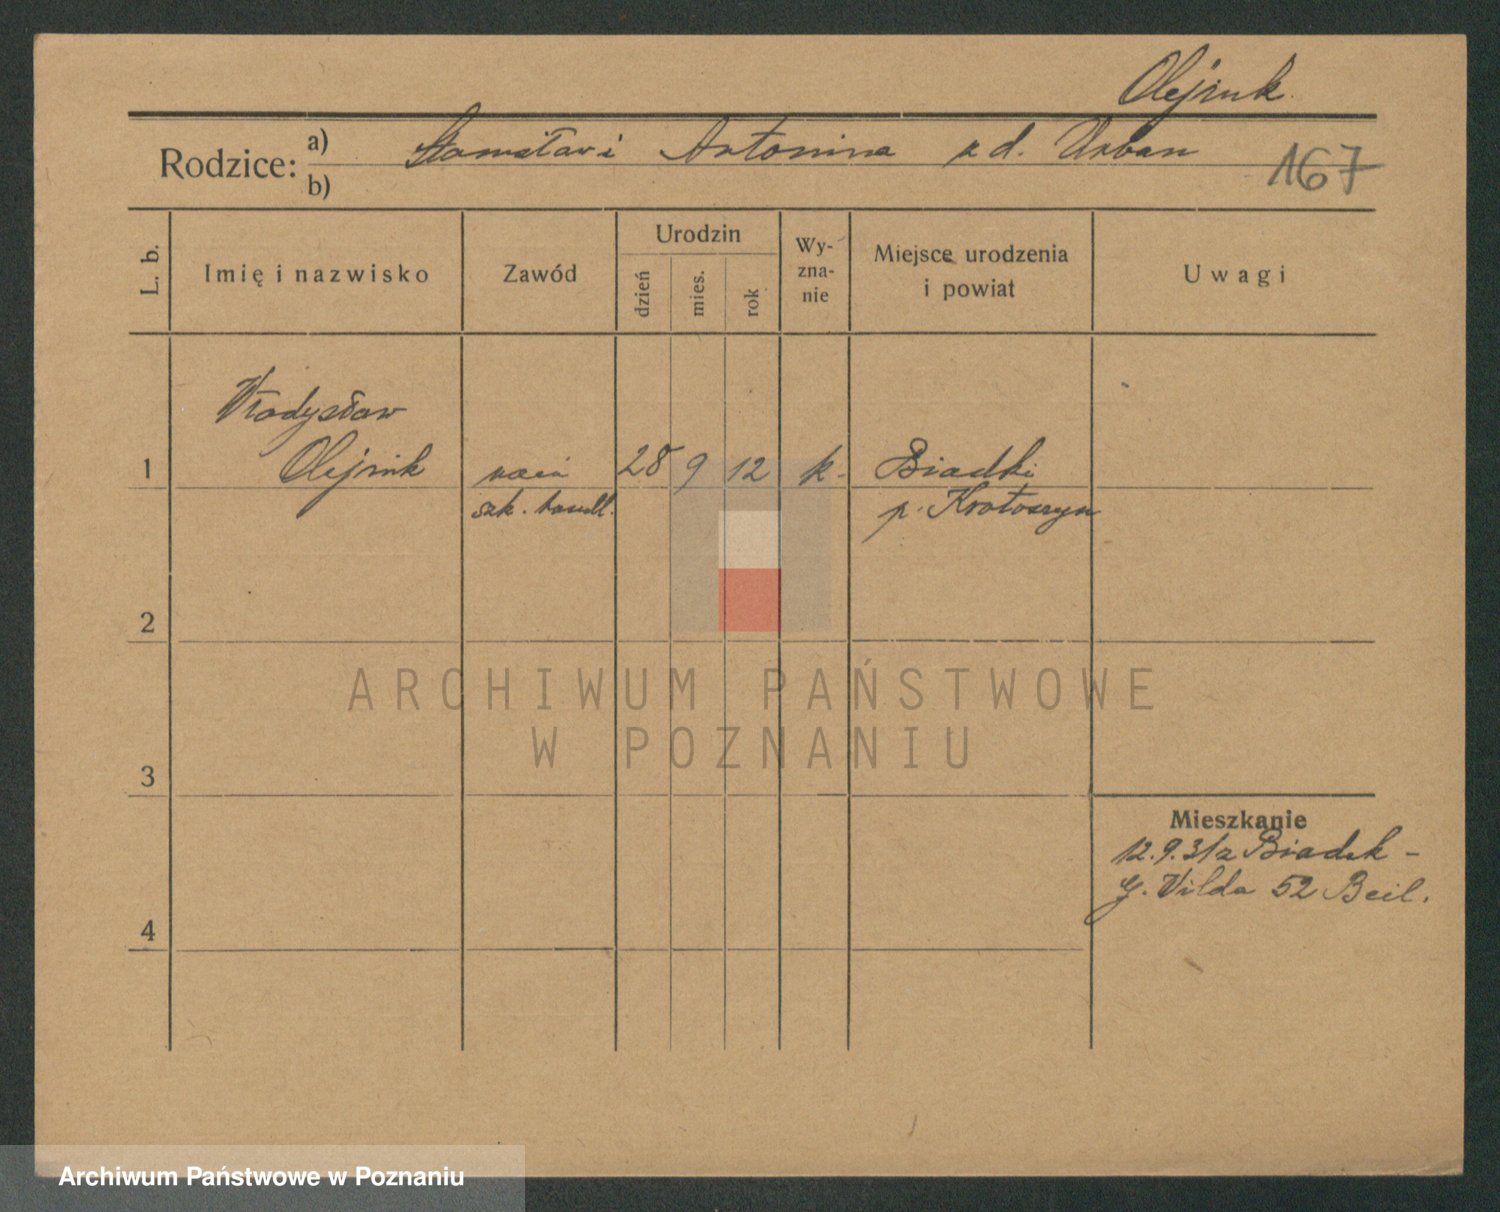 Olejnik
Rodzice: a) Stanisław i Antonina z d. Urban
b)
167
L. b.
Imię i nazwisko
Zawód
Urodzin
dzień
mies.
rok
Wy-
zna-
nie
Miejsce urodzenia
i powiat
Uwagi
Władysław
1 Olejnik 28 9 12 k. Biadki
szk. handl. p. Krotoszyn
2
3
4
Mieszkanie
12.9.31 z Biadek -
G. Wilda 52 Beil.
ARCHIWUM PAŃSTWOWE
W POZNANIU
Archiwum Państwowe w Poznaniu